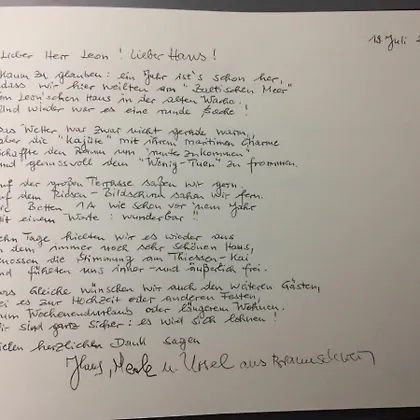 19. Juli
Lieber Herr Leon! Lieber Hans!
Kaum zu glauben: ein Jahr ist's schon her,
dass wir hier weilten am "Baltischen Meer"
Im Leon'schen Haus in der alten Wache.
Und wieder war es eine runde Sache!
Das Wetter war zwar nicht gerade warm,
aber die "Kajüte" mit ihrem maritimen Charme
schaffte den Raum um "runterzukommen"
und genussvoll dem "Wenig-Tuen" zu frommen.
Auf der großen Terrasse saßen wir gern
auf dem Riesen-Bildschirm sahen wir fern.
Die Betten 1A wie schon vor 'nem Jahr
Mit einem Worte: wunderbar!!
Zehn Tage hielten wir es wieder aus
in dem immer noch sehr schönen Haus,
genossen die Stimmung am Thiessen-Kai
und fühlten uns inner- und äußerlich frei.
Das Gleiche wünschen wir auch den weiteren Gästen,
sei es zur Hochzeit oder anderen Festen,
zum Wochenendurlaub oder längerem Wohnen.
Wir sind ganz sicher: es wird sich lohnen!
Vielen herzlichen Dank sagen
u. Ursel aus Braunschweig